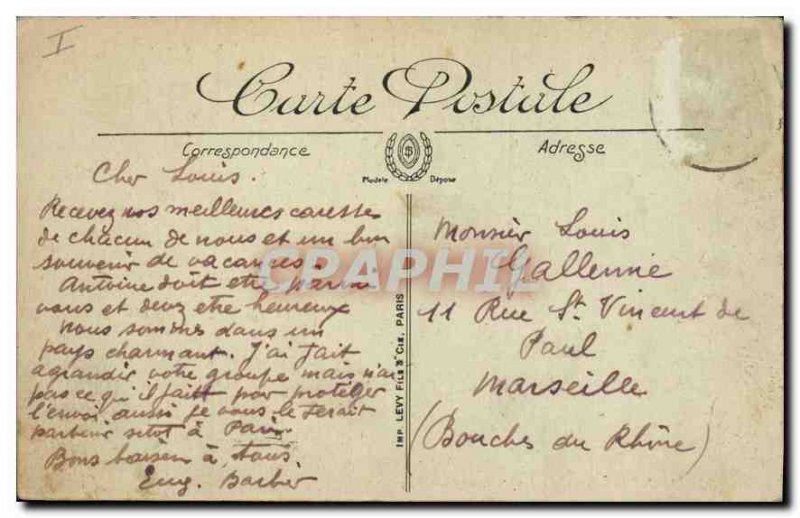 I
Carte Postale
Correspondance
Adresse
Modèle Déposé
Cher Louis.
Recevez nos meilleures caresses
de chacun de nous et un bon
souvenir de vacances.
Antoine doit etre parmi
vous et devez etre heureux
nous sommes dans un
pays charmant. J'ai fait
agrandir votre groupe mais n'ai
pas ce qu'il faitt por protéger
l'envoi aussi je vous le ferait
parvenir sitot à Paris
Bons baisers à tous.
Eug. Barbier
IMP. LEVY FILS & CIE, PARIS
Monsier Louis
Gallennie
11 Rue St. Vincent de
Paul
Marseille
(Bouches du Rhône)
CPAPHIL